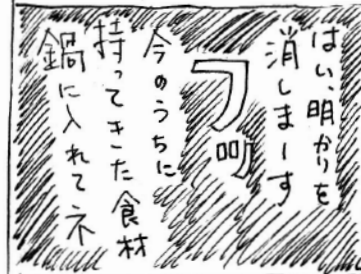 はい、明かりを
消しまーす
フッ
今のうちに
持ってきた食材
鍋に入れてネ